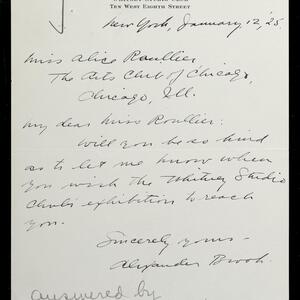 WHITNEY STUDIO CLUB
TEN WEST EIGHTH STREET
New York, January 12, '25.
Miss Alice Roullier,
The Arts Club of Chicago,
Chicago, Ill.
My dear Miss Roullier:
Will you be so kind
as to let me know when
you wish the Whitney Studio
Club's exhibition to reach
you.
Sincerely yours -
Alexander Brook.
answered by